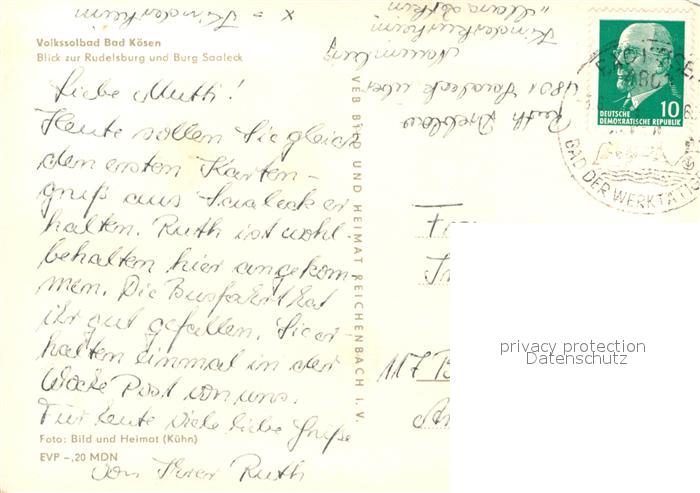 x = Kinderheim
Volkssolbad Bad Kösen
Blick zur Rudelsburg und Burg Saaleck
Liebe Mutti!
Heute sollen Sie gleich
den ersten Karten-
gruß aus Saaleck er
halten. Ruth ist wohl-
behalten hier angekom-
men. Die Busfahrt hat
ihr gut gefallen. Sie er
halten einmal in der
Woche Post von uns.
Für heute viele liebe Grüße
von Ihrer Ruth
Foto: Bild und Heimat (Kühn)
EVP -,20 MDN
VEB BILD UND HEIMAT REICHENBACH I. V.
Ruth
4801 Saaleck über
Naumburg
Kinderkurheim
DEUTSCHE
DEMOKRATISCHE REPUBLIK
10
BAD DER WERKTÄTIGEN
117 B
privacy protection
Datenschutz